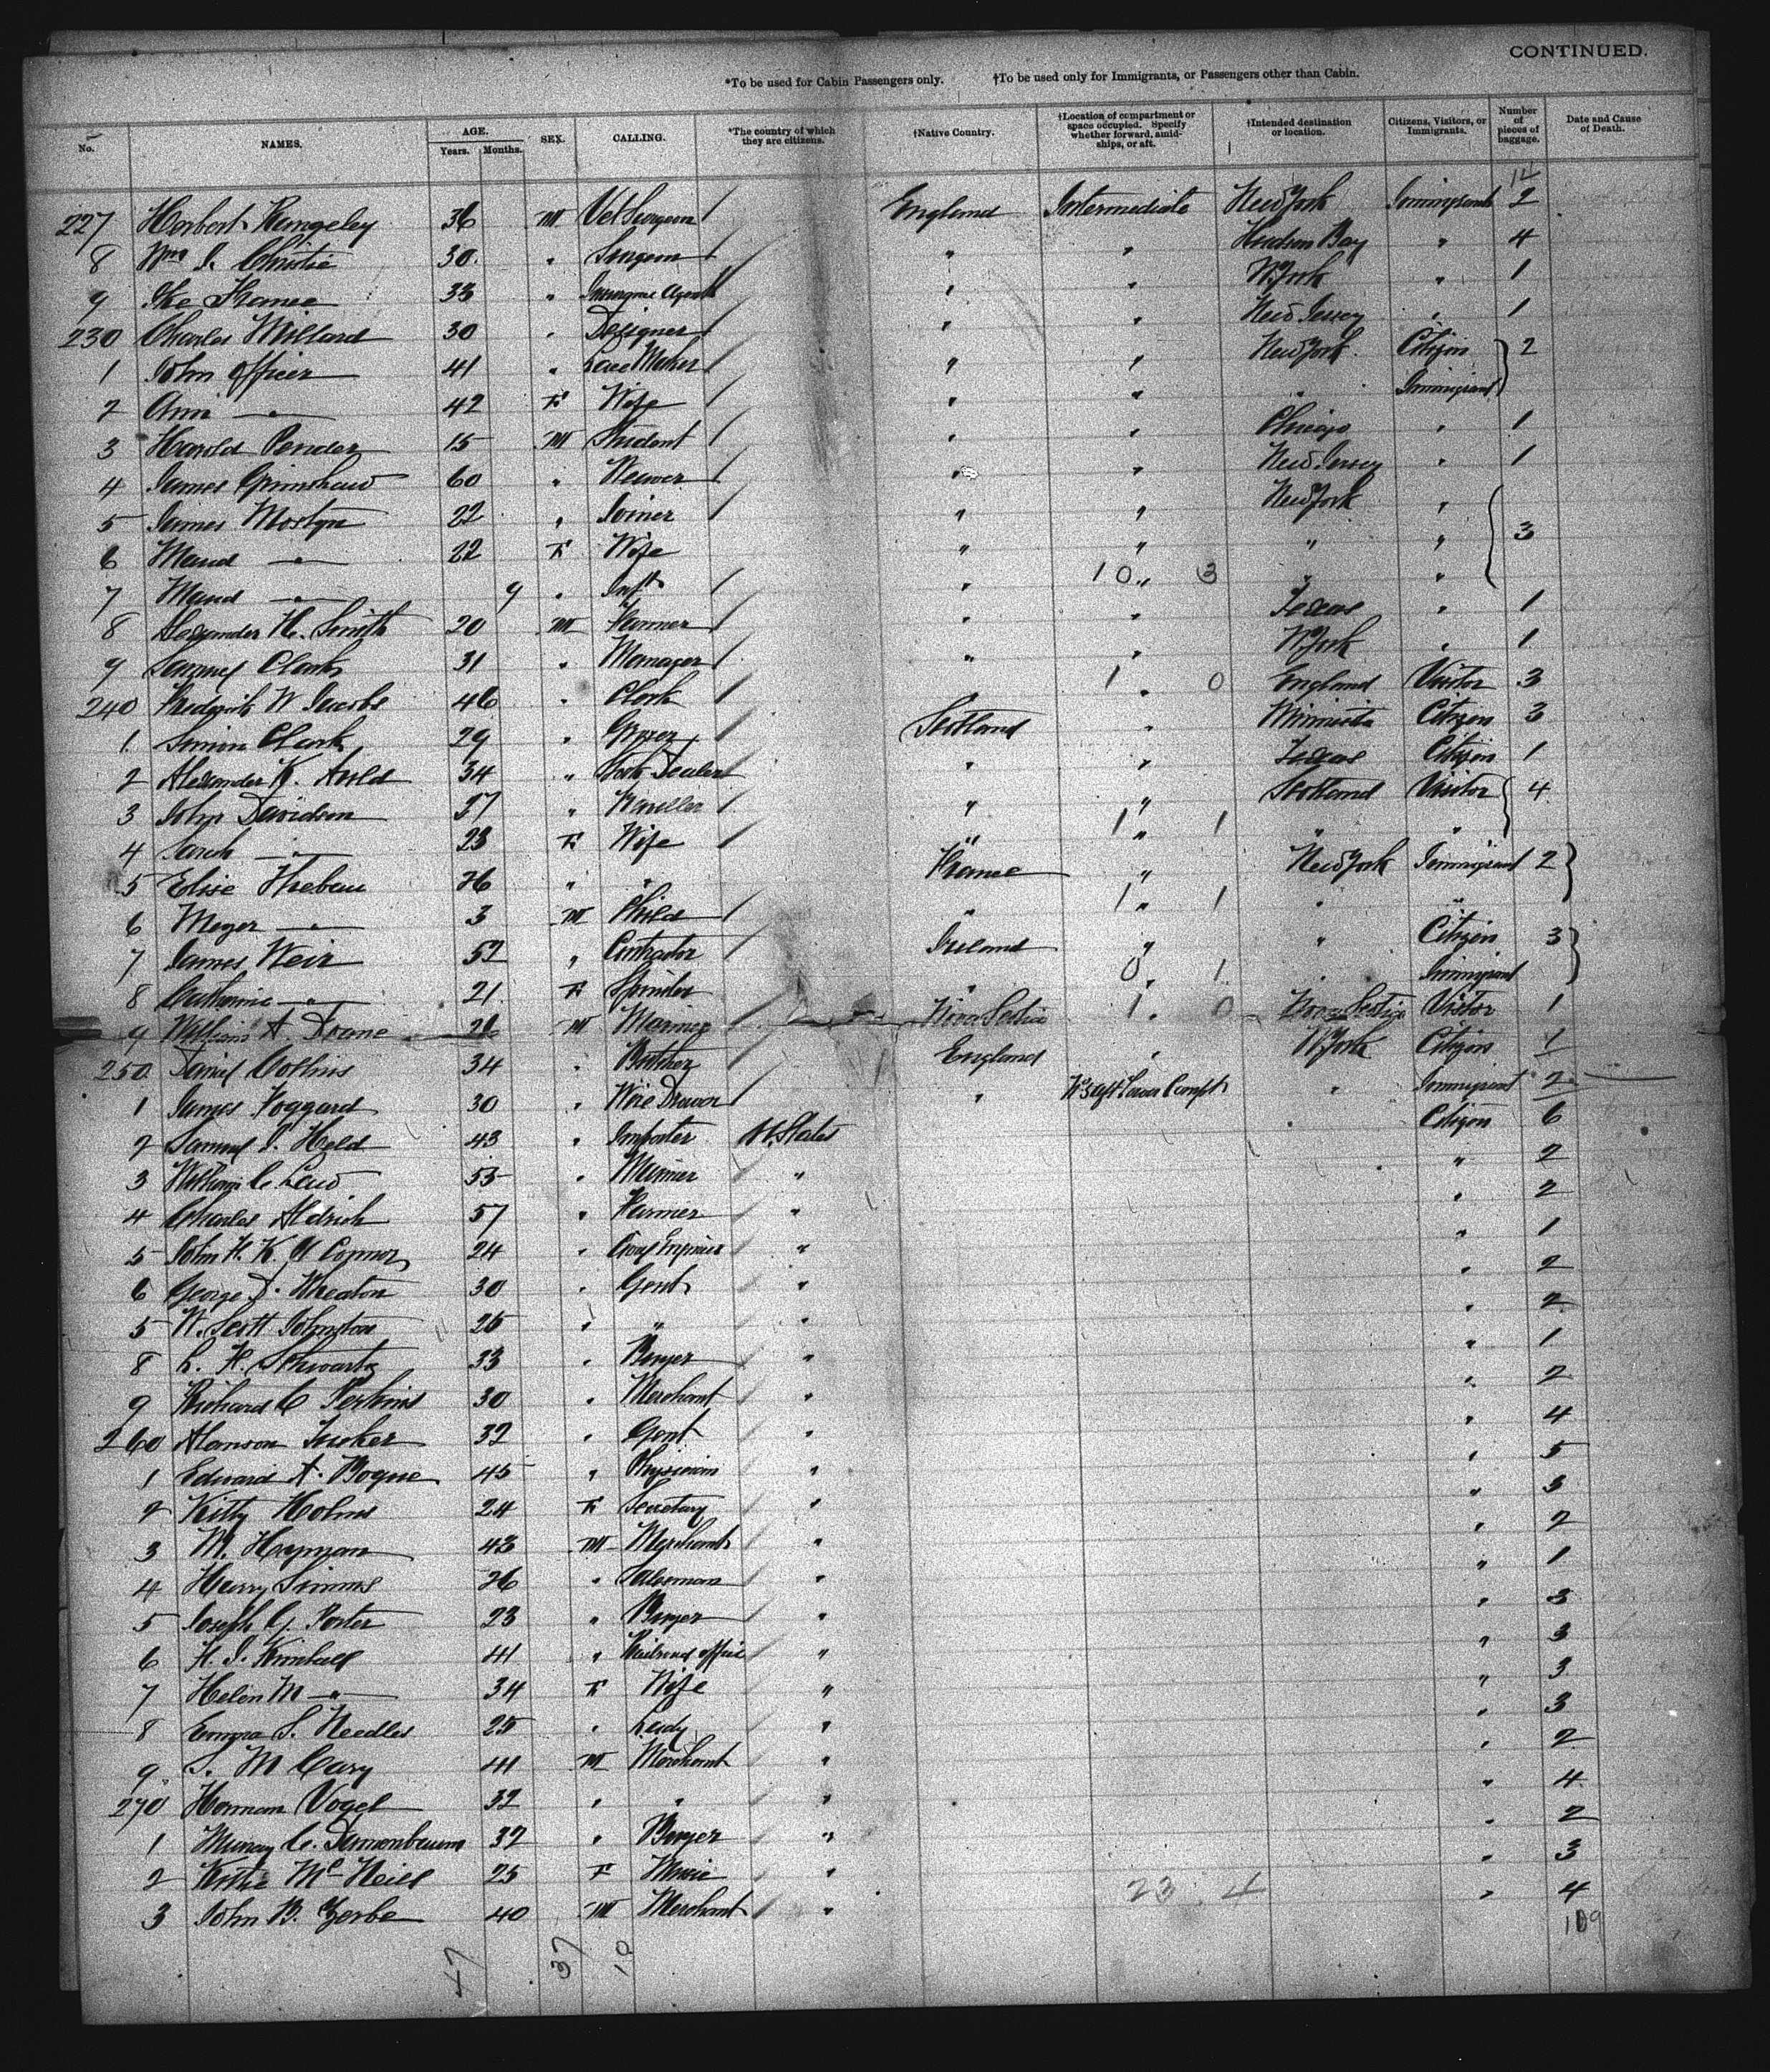 CONTINUED.
*To be used for Cabin Passengers only. †To be used only for Immigrants, or Passengers other than Cabin.
No. NAMES. AGE. Years. Months. SEX. CALLING. *The country of which they are citizens. †Native Country. †Location of compartment or space occupied. Specify whether forward, amidships, or aft. †Intended destination or location. Citizens, Visitors, or Immigrants. Number of pieces of baggage. Date and Cause of Death.
227 Herbert Rangeley 36 M Vet Surgeon England Intermediate New York Immigrant 2
8 Wm J. Christie 30 " Surgeon " " Hudson Bay " 4
9 33 " Insurance Agent " " N. York " 1
230 Charles Millard 30 " Designer " " New Jersey " 1
1 John Officer 41 " Lace Maker " " New York Citizen 2
2 Ann " 42 F Wife " " " Immigrant
3 Harold Pender 15 M Student " " Chicago " 1
4 James Grimshaw 60 " Weaver " " New Jersey " 1
5 James Mostyn 22 " Joiner " " New York "
6 Maud " 22 F Wife " " " " 3
7 Maud " 9 " Inft " 10 " 3 " "
8 Alexander H. Smith 20 M Farmer " " Texas " 1
9 Samuel Clark 31 " Manager " " N. York " 1
240 Frederick W Jacobs 46 " Clerk 1 " 0 England Visitor 3
1 Simon Clark 29 " Grocer Scotland " Citizen 3
2 Alexander K. Auld 34 " Dealer " " Texas Citizen 1
3 John Davidson 37 " " " Scotland Visitor 4
4 Sarah " 23 F Wife " 1 " 1 " "
5 Elise 26 " " France " New York Immigrant 2
6 Meyer " 3 M Child " 1 " 1 " "
7 James Weir 52 " Contractor Ireland " " Citizen 3
8 Catherine " 21 F Spinster " 0 " 1 " Immigrant
9 William A Doane 26 M Mariner Nova Scotia 1 " 0 Nova Scotia Visitor 1
250 Daniel Collins 34 " Butcher England " N. York Citizen 1
1 James Foggard 30 " Wire Drawer " Aft Lower Compt " Immigrant 2
2 Samuel J. Held 43 " Importer U. States " Citizen 6
3 William C. Law 53 " " " 2
4 Charles Aldrich 57 " Farmer " " 2
5 John H. K. 24 " Civil Engineer " " 1
6 George D. Wheaton 30 " Gent " " 2
5 W. Scott Johnston 25 " " " " 2
8 L. H. Schwartz 33 " Buyer " " 1
9 Richard C Perkins 30 " Merchant " " 2
260 Alanson Tucker 32 " Gent " " 4
1 Edward A. Bogue 45 " Physician " " 5
2 Kitty Holms 24 F Secretary " " 3
3 M. Hayman 43 M Merchant " " 2
4 Harry Simms 26 " Salesman " " 1
5 Joseph G. Porter 23 " Buyer " " 3
6 H. I. Kimball 41 " Railroad Office " " 3
7 Helen M " 34 F Wife " " 3
8 Emma S. Needles 25 " Lady " " 3
9 S. M Cary 41 M Merchant " " 2
270 Herman Vogel 32 " " " " 4
1 Murray C. Danenbaum 32 " Buyer " " 2
2 Katie McNeill 25 F " " 3
3 John B. Zerbe 40 M Merchant " 23 4 " 4
47 37 10 109